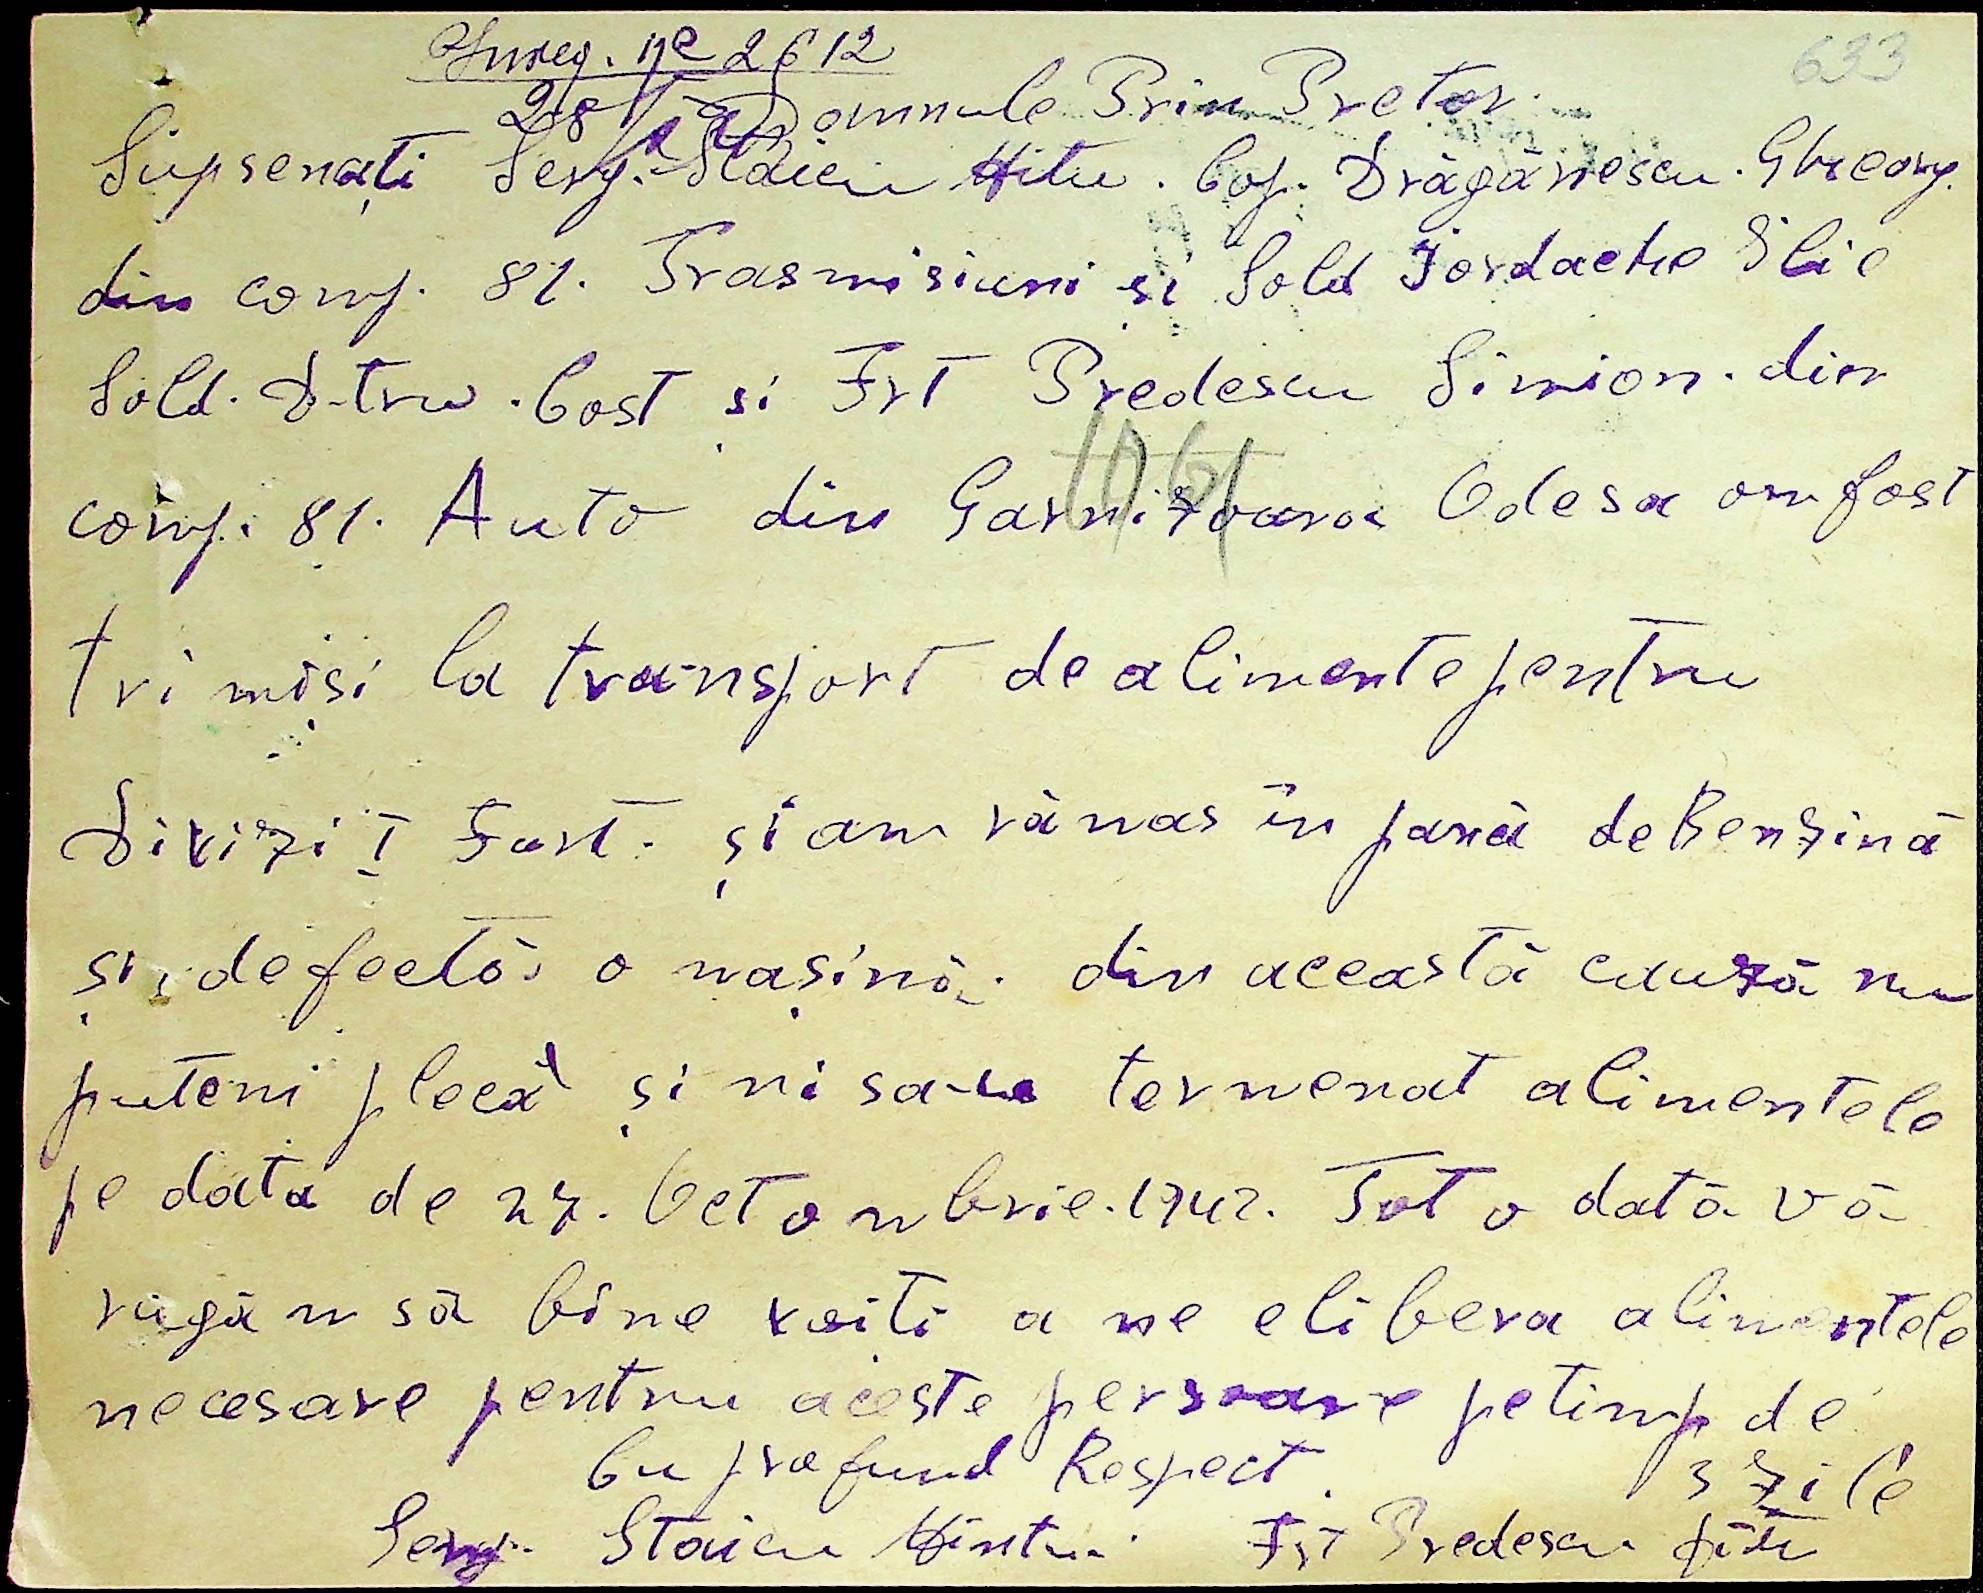 Inreg. No 2612
633
28/X 942
Domnule Prim Pretor.
Supsenați Serg. Staicu Hitu. Cap. Drăgănescu. Gheorg.
din comp. 81. Trasmisiuni și Sold Iordache Ilie
Sold. D-tru. Cost și Frt Predescu Simion. din
comp. 81. Auto din Garnizoana Odesa am fost
trimiși la transport de alimente pentru
Divizi I Fort. și am rămas în pană de Benzină
și defectă o mașină. din această cauză nu
putem plecă și ni sa-u termenat alimentele
pe data de 27. Octombrie. 1942. Tot o dată vă
rugăm să bine voiți a ne elibera alimentele
necesare pentru aceste persoane pe timp de
3 zile
Cu profund Respect.
Serg. Staicu Hintu. Frt Predescu